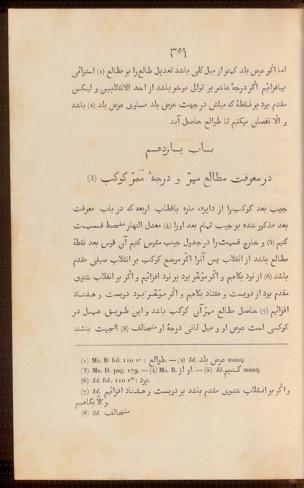 ٣٥٩
اما اگر عرض بلد كمتر از ميل كلى باشد تعديل طالع را بر مطالع (1) استوائى
بيافزائيم اگر درجهٔ عاشر بر توالى موخر باشد از احد الانقلابين و ليكس
مقدم بود بر نقطهٔ كه ميلش در جهت عرض بلد مساوى عرض بلد (2) باشد
و الّا نقصان ميكنيم تا طوالع حاصل آيد
باب يازدهم
در معرفت مطالع ممرّ و درجهٔ ممرّ كوكب (3)
جيب بعد كوكب را از دايره مارّه باقطاب اربعه كه در باب معرفت
بعد مذكور شده بر جيب تمام بعد اورا (4) معدل النهار منحط قسمت
كنيم (5) و خارج قسمت را در جدول جيب مقوس كنيم آن قوس بعد نقطهٔ
مطالع باشد از انقلاب پس آنرا اگر موضع كوكب بر انقلاب صيفى مقدم
باشد (6) از نود بكاهيم و اگر موٴخّر بود بر نود افزائيم و اگر بر انقلاب شتوى
مقدم بود از دويست و هفتاد بكاهيم و اگر موٴخّر بود بر دويست و هفتاد
افزائيم (7) حاصل مطالع ممرّ آن كوكب باشد و اين طريق عمل در
كوكبى است عرض او و ميل ثانى درجهٔ او متخالف (8) الجهت باشند
(1) Ms. B fol. 110 vº : طوالع. — (2) Id. عرض بلد manq.
(3) Ms. D. pag. 179. — (4) Ms. B. او از. — (5) Id. كنيم manq.
(6) Id. fol. 110 vº : بود.
(7) Id. و اگر بر انقلاب شتوى مقدم باشد بر دويست و هفتاد افزائيم
و الّا بكاهيم.
(8) Id. متخالف